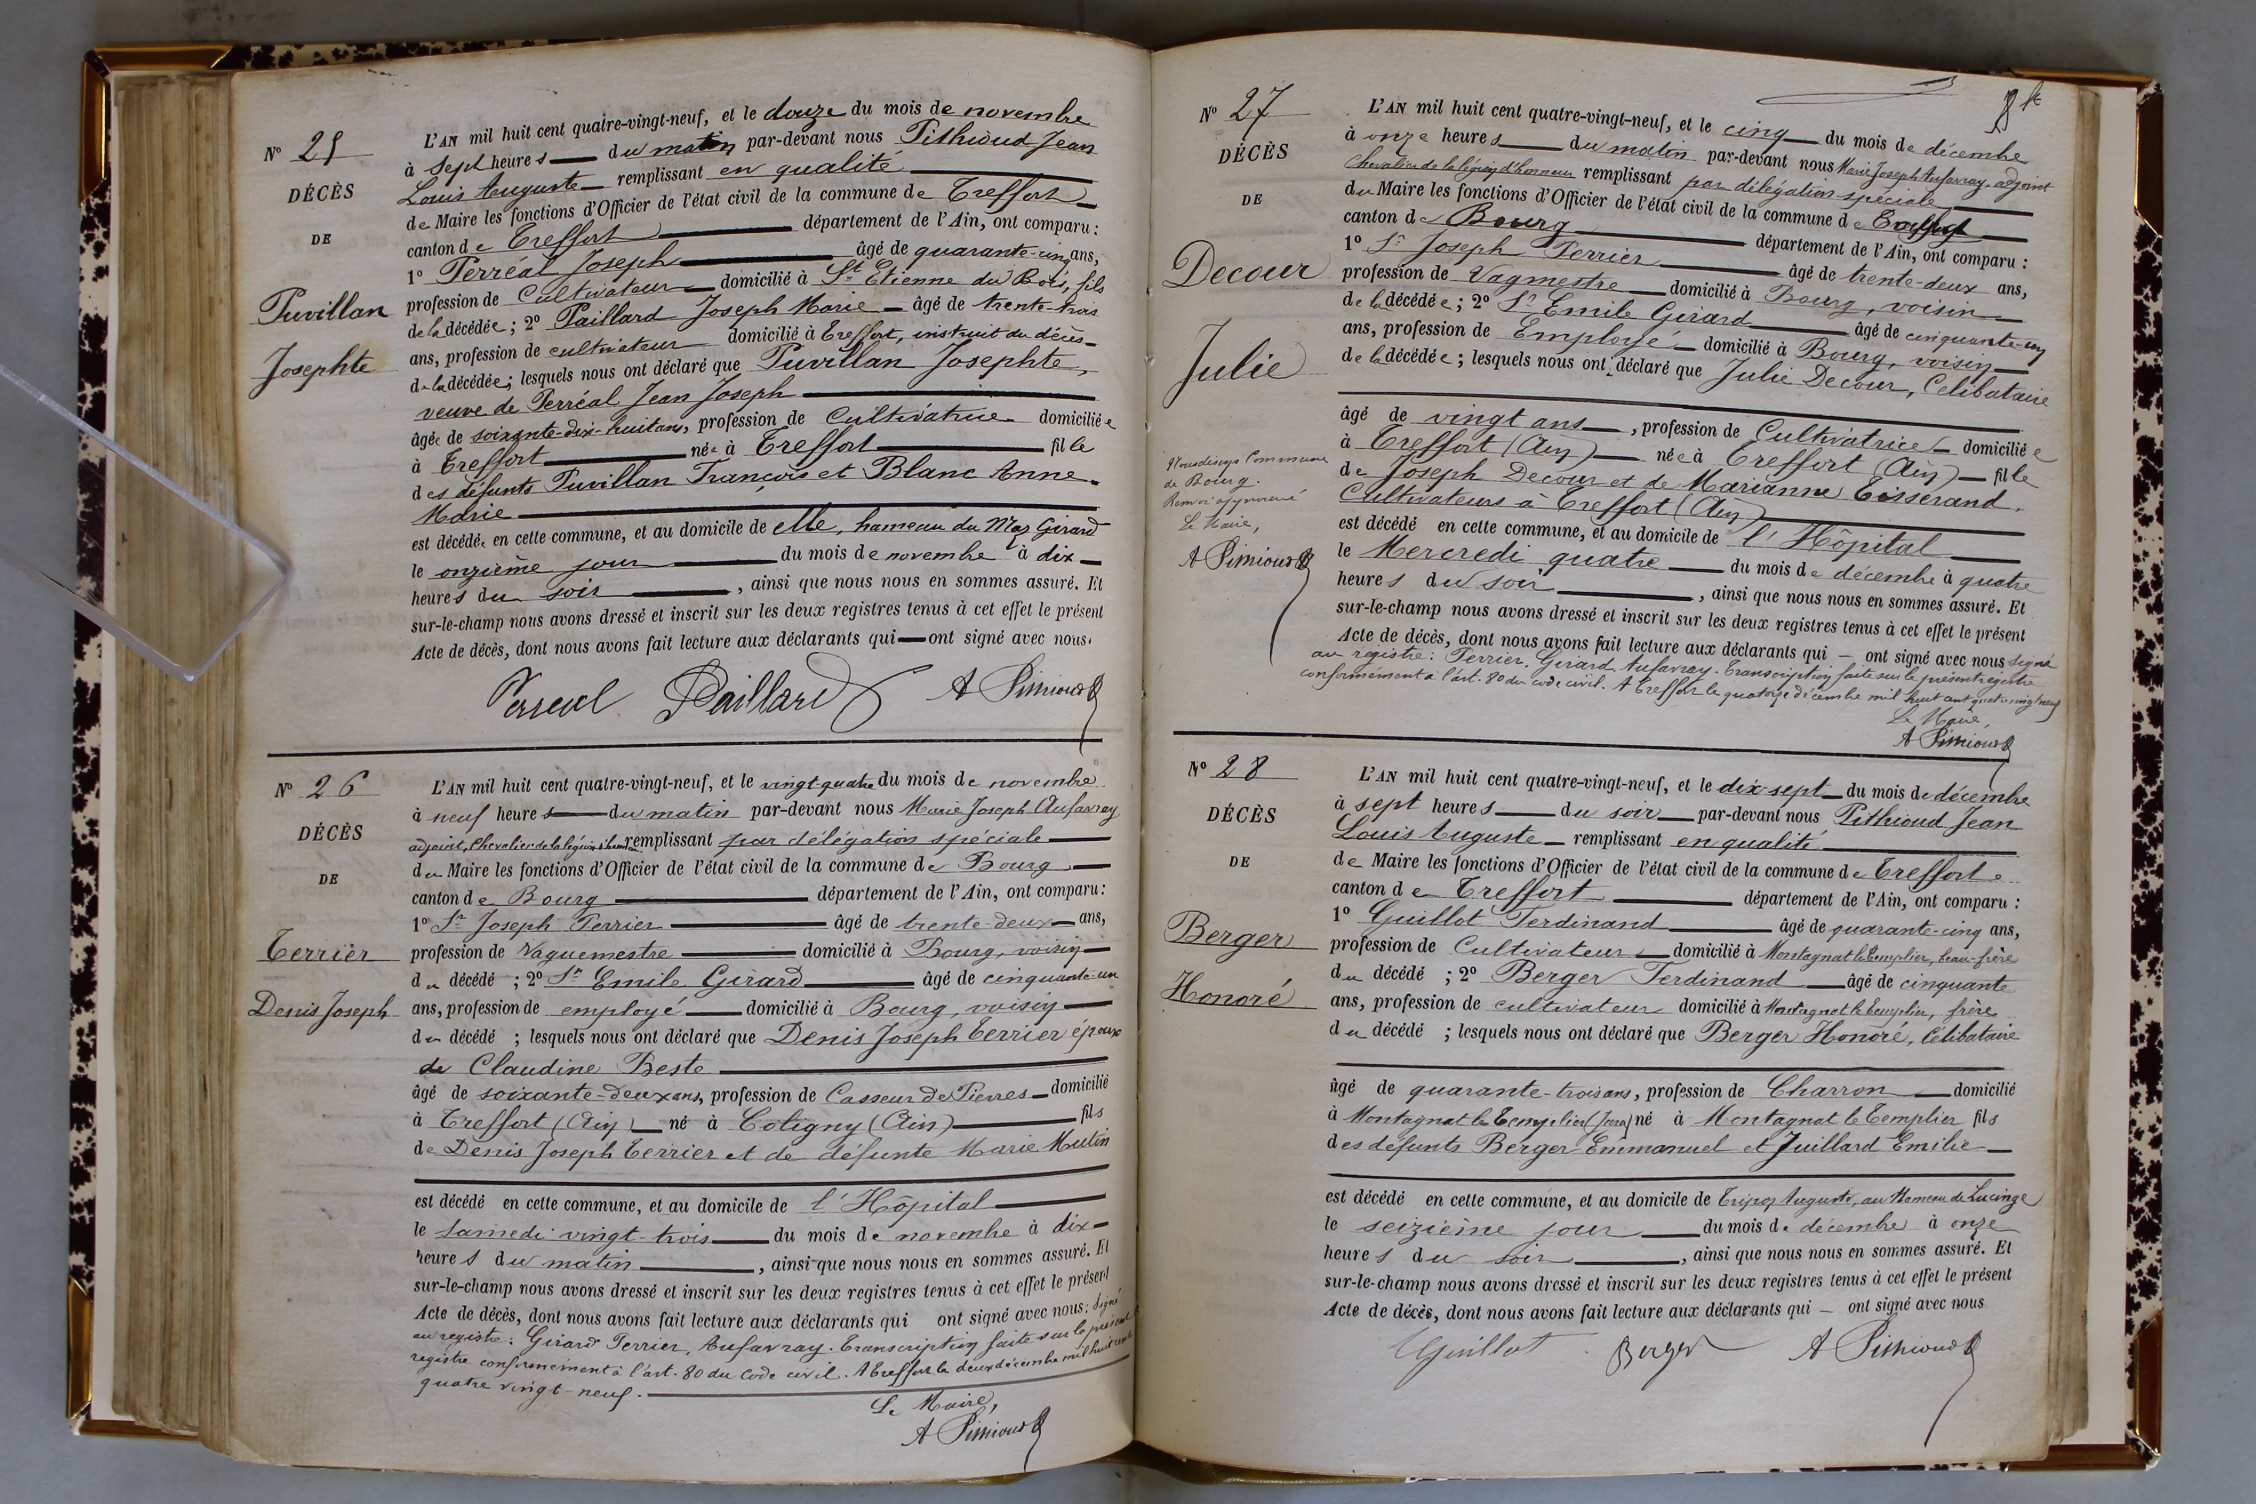 N° 25
DÉCÈS
DE
Puvillan
Josephte
L'AN mil huit cent quatre-vingt-neuf, et le douze du mois de novembre
à sept heures du matin par-devant nous Pithioud Jean
Louis Auguste remplissant en qualité
de Maire les fonctions d'Officier de l'état civil de la commune de Treffort
canton de Treffort département de l'Ain, ont comparu :
1° Perréal Joseph âgé de quarante-cinq ans,
profession de Cultivateur domicilié à St Etienne du Bois, fils
de la décédée ; 2° Paillard Joseph Marie âgé de trente-trois
ans, profession de cultivateur domicilié à Treffort, instruit du décès
de la décédée ; lesquels nous ont déclaré que Puvillan Josephte,
veuve de Perréal Jean Joseph
âgée de soixante-dix-huit ans, profession de Cultivatrice domiciliée
à Treffort née à Treffort fille
des défunts Puvillan François et Blanc Anne
Marie
est décédée en cette commune, et au domicile de elle, hameau du Mas Girard
le onzième jour du mois de novembre à dix
heures du soir, ainsi que nous nous en sommes assuré. Et
sur-le-champ nous avons dressé et inscrit sur les deux registres tenus à cet effet le présent
Acte de décès, dont nous avons fait lecture aux déclarants qui ont signé avec nous.
Perreal Paillard A Pithioud
N° 26
DÉCÈS
DE
Terrier
Denis Joseph
L'AN mil huit cent quatre-vingt-neuf, et le vingt-quatre du mois de novembre
à neuf heures du matin par-devant nous Marie Joseph Aufavray
adjoint, Chevalier de la légion d'honneur remplissant par délégation spéciale
du Maire les fonctions d'Officier de l'état civil de la commune de Bourg
canton de Bourg département de l'Ain, ont comparu :
1° Sr Joseph Perrier âgé de trente-deux ans,
profession de Vaguemestre domicilié à Bourg, voisin
du décédé ; 2° Sr Emile Girard âgé de cinquante-un
ans, profession de employé domicilié à Bourg, voisin
du décédé ; lesquels nous ont déclaré que Denis Joseph Terrier époux
de Claudine Beste
âgé de soixante-deux ans, profession de Casseur de Pierres domicilié
à Treffort (Ain) né à Coligny (Ain) fils
de Denis Joseph Terrier et de défunte Marie Mutin
est décédé en cette commune, et au domicile de l'Hôpital
le samedi vingt-trois du mois de novembre à dix
heures du matin, ainsi que nous nous en sommes assuré. Et
sur-le-champ nous avons dressé et inscrit sur les deux registres tenus à cet effet le présent
Acte de décès, dont nous avons fait lecture aux déclarants qui ont signé avec nous : Signé
au registre : Girard Perrier, Aufavray. Transcription faite sur le présent
registre conformément à l'art. 80 du Code civil. A Treffort le deux décembre mil huit cent
quatre vingt-neuf.
Le Maire,
A Pithioud
N° 27
DÉCÈS
DE
Decour
Julie
Nous disons Commune
de Bourg.
Renvoi approuvé
Le Maire,
A Pithioud
L'AN mil huit cent quatre-vingt-neuf, et le cinq du mois de décembre
à onze heures du matin par-devant nous Marie Joseph Aufavray, adjoint
Chevalier de la légion d'honneur remplissant par délégation spéciale
du Maire les fonctions d'Officier de l'état civil de la commune de Treffort
canton de Bourg département de l'Ain, ont comparu :
1° Sr Joseph Perrier âgé de trente-deux ans,
profession de Vagmestre domicilié à Bourg, voisin
de la décédée ; 2° Sr Emile Girard âgé de cinquante-un
ans, profession de Employé domicilié à Bourg, voisin
de la décédée ; lesquels nous ont déclaré que Julie Decour, Célibataire
âgé de vingt ans, profession de Cultivatrice domiciliée
à Treffort (Ain) née à Treffort (Ain) fille
de Joseph Decour et de Marianne Tisserand,
Cultivateurs à Treffort (Ain)
est décédé en cette commune, et au domicile de l'Hôpital
le Mercredi quatre du mois de décembre à quatre
heures du soir, ainsi que nous nous en sommes assuré. Et
sur-le-champ nous avons dressé et inscrit sur les deux registres tenus à cet effet le présent
Acte de décès, dont nous avons fait lecture aux déclarants qui ont signé avec nous signé
au registre : Perrier, Girard Aufavray. Transcription faite sur le présent registre
conformément à l'art. 80 du code civil. A Treffort le quatorze décembre mil huit cent quatre vingt neuf
Le Maire,
A Pithioud
N° 28
DÉCÈS
DE
Berger
Honoré
L'AN mil huit cent quatre-vingt-neuf, et le dix-sept du mois de décembre
à sept heures du soir par-devant nous Pithioud Jean
Louis Auguste remplissant en qualité
de Maire les fonctions d'Officier de l'état civil de la commune de Treffort
canton de Treffort département de l'Ain, ont comparu :
1° Guillot Ferdinand âgé de quarante-cinq ans,
profession de Cultivateur domicilié à Montagnat le Templier, beau-frère
du décédé ; 2° Berger Ferdinand âgé de cinquante
ans, profession de cultivateur domicilié à Montagnat le Templier, frère
du décédé ; lesquels nous ont déclaré que Berger Honoré, Célibataire
âgé de quarante-trois ans, profession de Charron domicilié
à Montagnat le Templier (Jura) né à Montagnat le Templier fils
des défunts Berger Emmanuel et Juillard Emilie
est décédé en cette commune, et au domicile de Tripoz Auguste, au Hameau de Lucinge
le seizième jour du mois de décembre à onze
heures du soir, ainsi que nous nous en sommes assuré. Et
sur-le-champ nous avons dressé et inscrit sur les deux registres tenus à cet effet le présent
Acte de décès, dont nous avons fait lecture aux déclarants qui ont signé avec nous
Guillot Berger A Pithioud